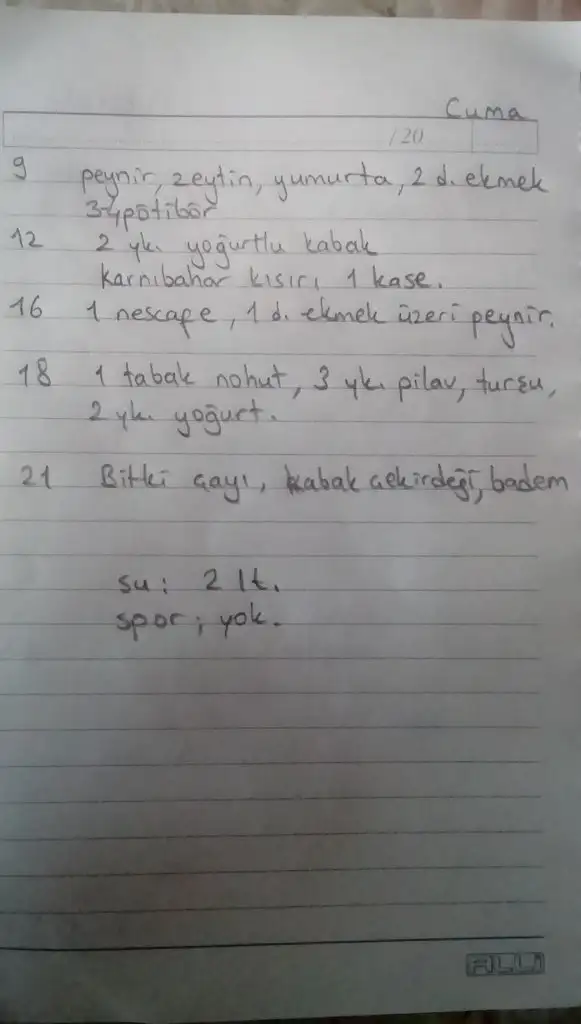 Cuma
/20
9 peynir, zeytin, yumurta, 2 d. ekmek
3-4 pötibör
12 2 yk. yoğurtlu kabak
karnıbahar kısırı 1 kase.
16 1 nescafe, 1 d. ekmek üzeri peynir.
18 1 tabak nohut, 3 yk. pilav, turşu,
2 yk. yoğurt.
21 Bitki çayı, kabak çekirdeği, badem
su: 2 lt.
spor; yok.